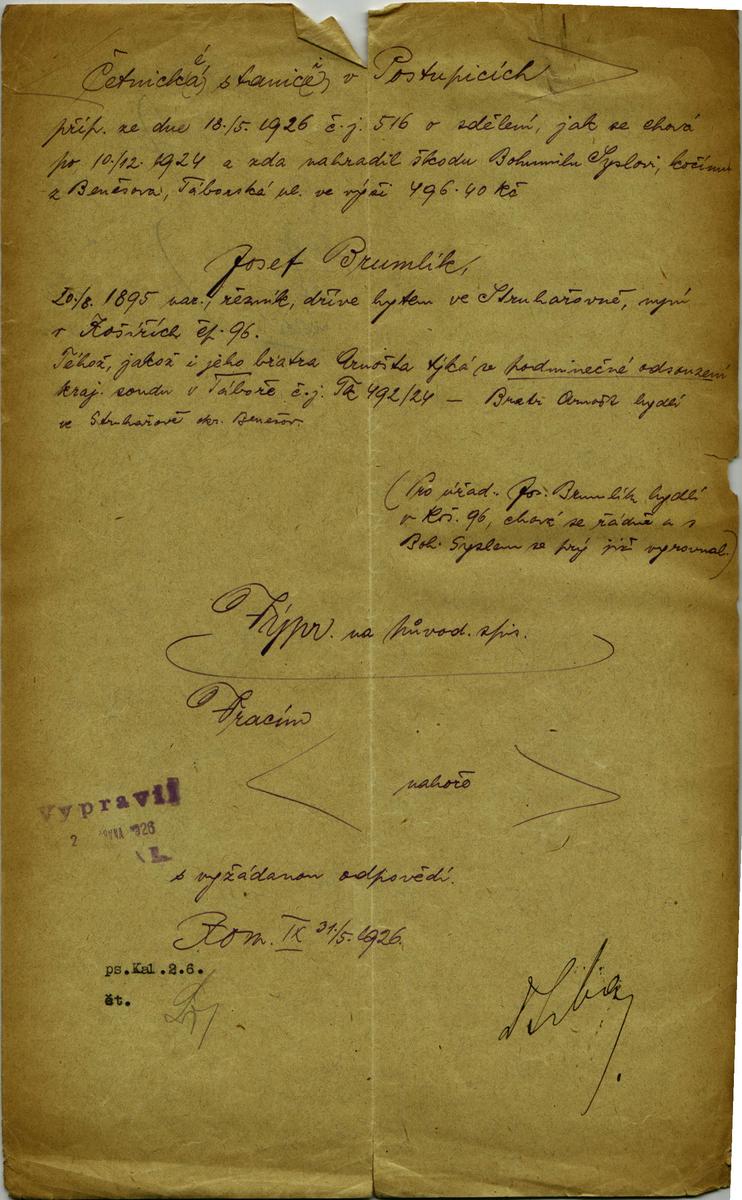 Četnická stanice v Postupicích
příp. ze dne 18./5. 1926 č.j. 516 o sdělení, jak se chová
po 10./12. 1924 a zda nahradil škodu Bohumilu Syslovi, kočímu
z Benešova, Táborská ul. ve výši 496.40 Kč
Josef Brumlík,
20./8. 1895 nar., řezník, dříve bytem ve Struhařovně, nyní
v Košířích čp. 96.
Téhož, jakož i jeho bratra Arnošta týká se podmínečné odsouzení
kraj. soudu v Táboře č.j. Tk 492/24 — Bratr Arnošt bydlí
ve Struhařově okr. Benešov.
(Pro úřad: Jos. Brumlík bydlí
v Koš. 96, chová se řádně a s
Boh. Syslem se prý již vyrovnal.)
Výpr. na původ. spis.
Vracím
nahoře
Vypravil
2 1926
s vyžádanou odpovědí.
Kom. IX 31./5. 1926.
ps.Kal.2.6.
čt.